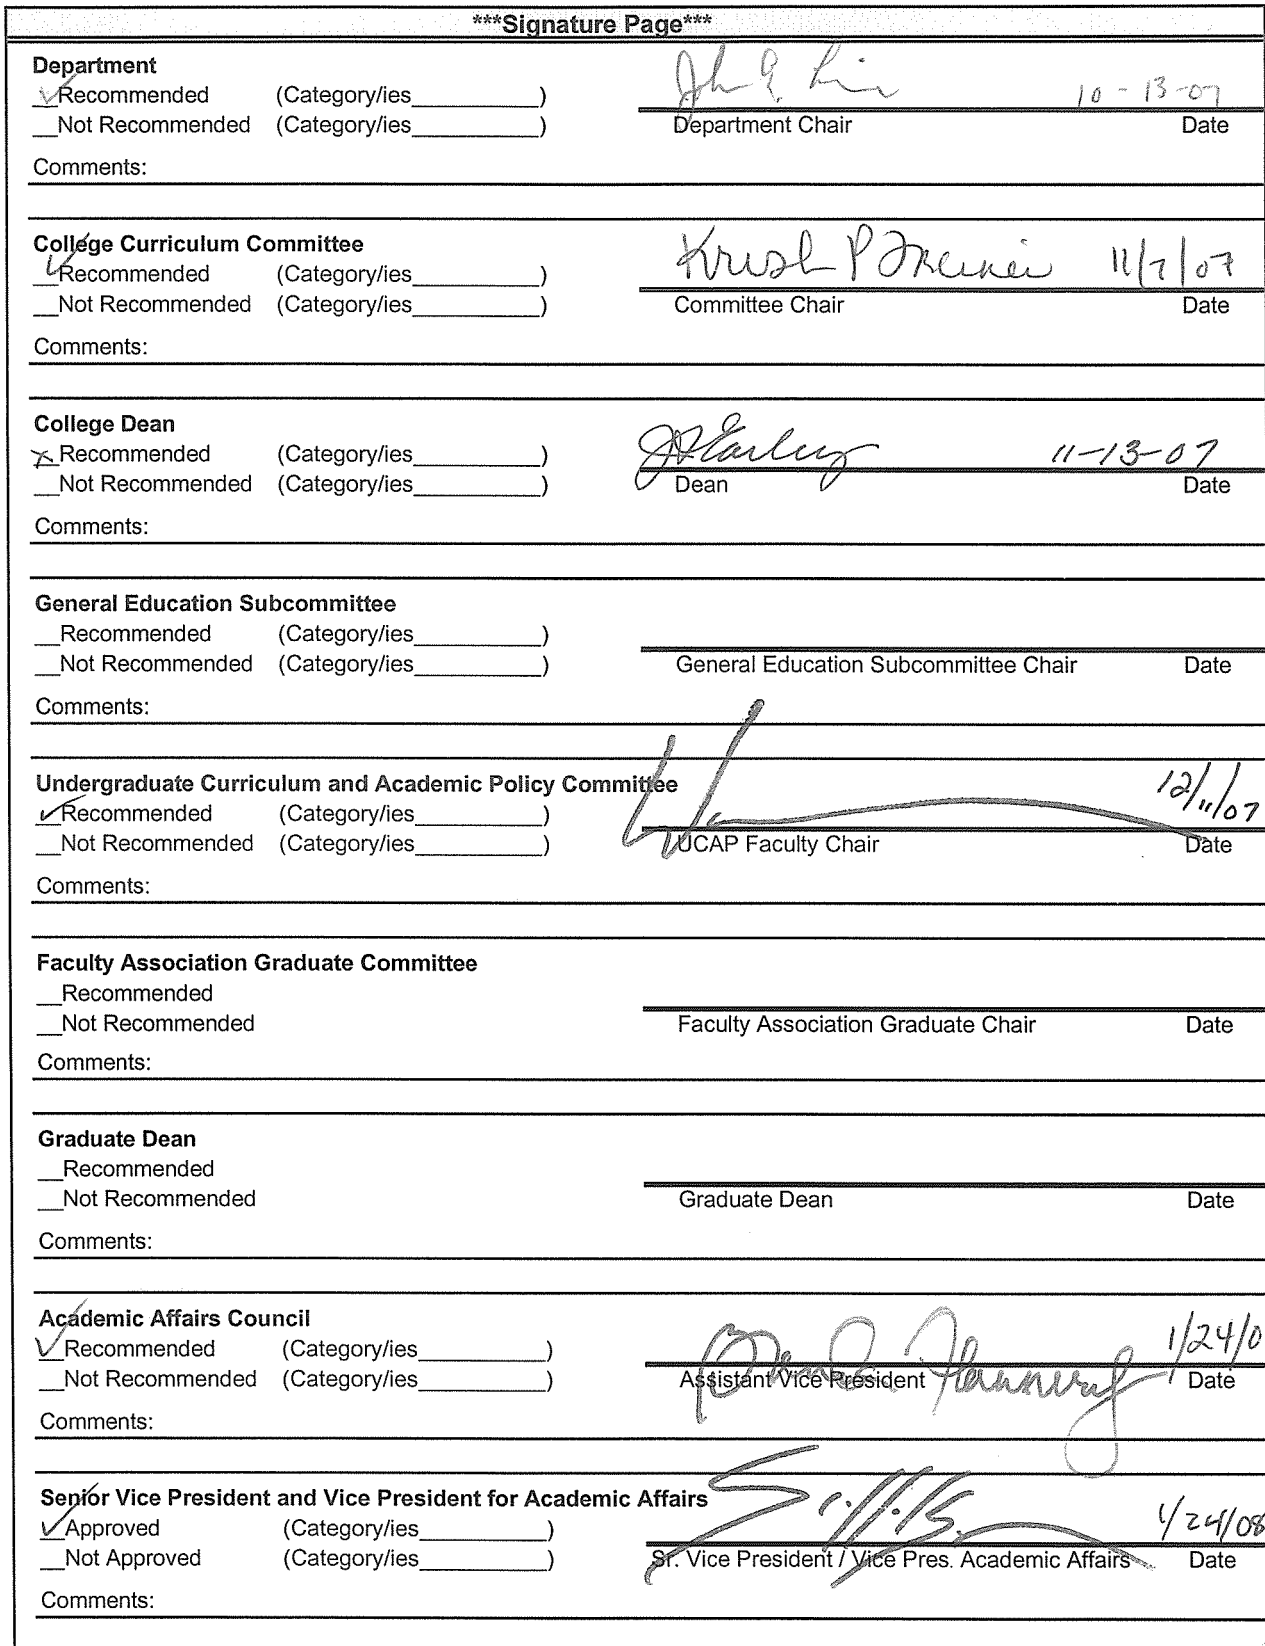 ***Signature Page***
Department
__Recommended (Category/ies__________)
10-13-07
__Not Recommended (Category/ies__________)
Department Chair Date
Comments:
College Curriculum Committee
__Recommended (Category/ies__________)
11/7/07
__Not Recommended (Category/ies__________)
Committee Chair Date
Comments:
College Dean
__Recommended (Category/ies__________)
11-13-07
__Not Recommended (Category/ies__________)
Dean Date
Comments:
General Education Subcommittee
__Recommended (Category/ies__________)
__Not Recommended (Category/ies__________)
General Education Subcommittee Chair Date
Comments:
Undergraduate Curriculum and Academic Policy Committee
__Recommended (Category/ies__________)
12/11/07
__Not Recommended (Category/ies__________)
UCAP Faculty Chair Date
Comments:
Faculty Association Graduate Committee
__Recommended
__Not Recommended
Faculty Association Graduate Chair Date
Comments:
Graduate Dean
__Recommended
__Not Recommended
Graduate Dean Date
Comments:
Academic Affairs Council
__Recommended (Category/ies__________)
1/24/0
__Not Recommended (Category/ies__________)
Assistant Vice President Date
Comments:
Senior Vice President and Vice President for Academic Affairs
__Approved (Category/ies__________)
1/24/08
__Not Approved (Category/ies__________)
Sr. Vice President / Vice Pres. Academic Affairs Date
Comments: